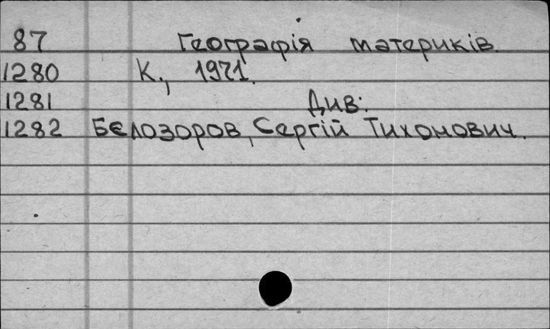 87 Географія материків
1280 К., 1971.
1281 Див:
1282 Бєлозоров, Сергій Тихонович.